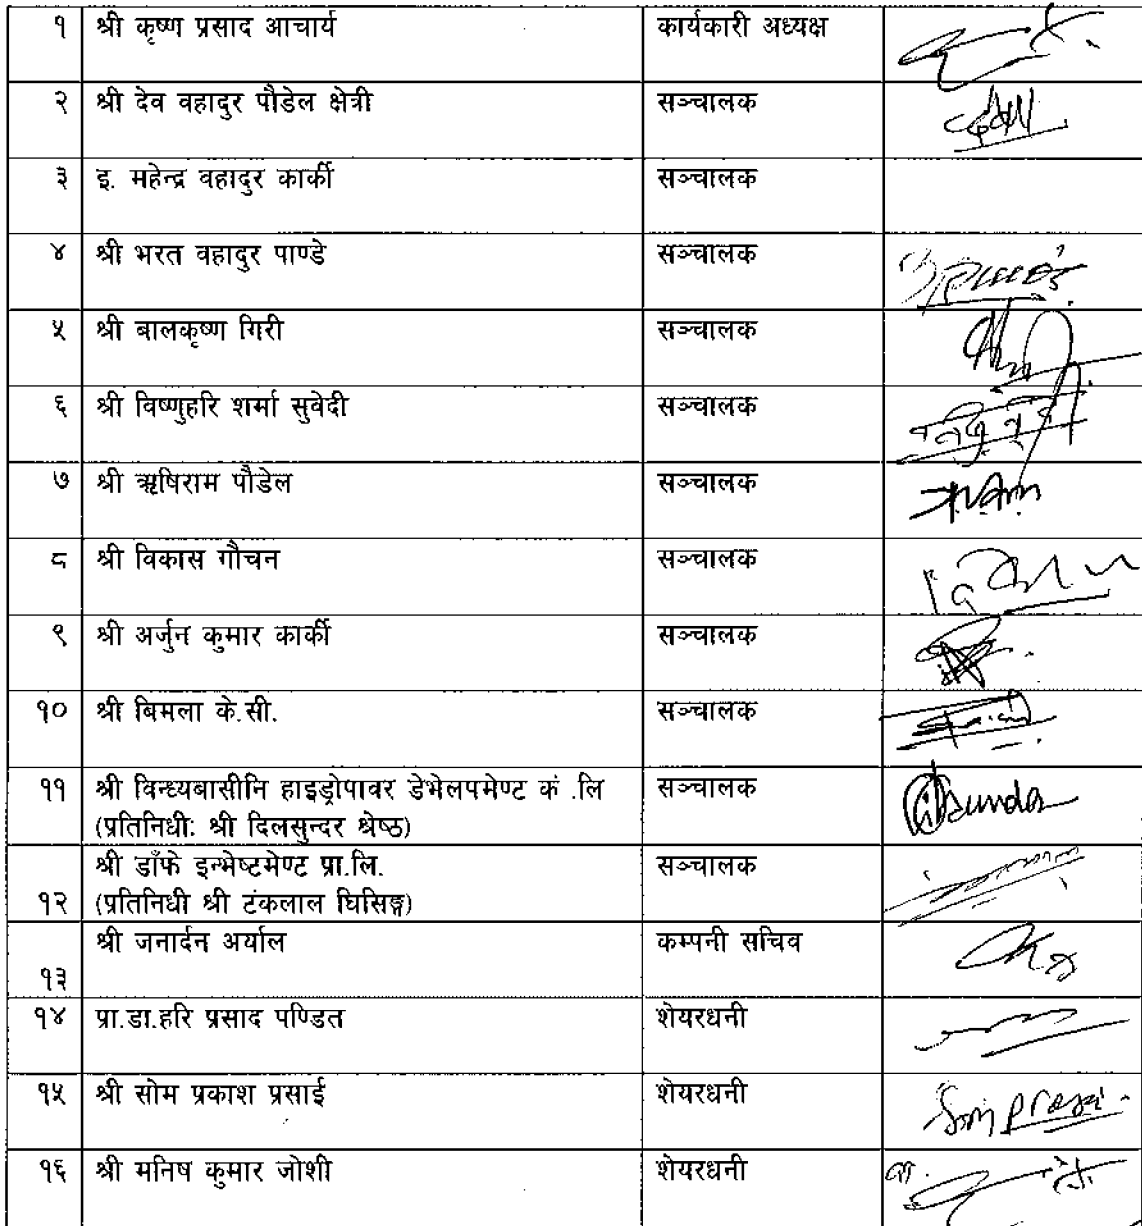 १ श्री कृष्ण प्रसाद आचार्य कार्यकारी अध्यक्ष
२ श्री देव वहादुर पौडेल क्षेत्री सञ्चालक
३ इ. महेन्द्र वहादुर कार्की सञ्चालक
४ श्री भरत वहादुर पाण्डे सञ्चालक
५ श्री बालकृष्ण गिरी सञ्चालक
६ श्री विष्णुहरि शर्मा सुवेदी सञ्चालक
७ श्री ऋषिराम पौडेल सञ्चालक
८ श्री विकास गौचन सञ्चालक
९ श्री अर्जुन कुमार कार्की सञ्चालक
१० श्री बिमला के.सी. सञ्चालक
११ श्री विन्ध्यबासीनि हाइड्रोपावर डेभेलपमेण्ट कं .लि सञ्चालक
(प्रतिनिधी: श्री दिलसुन्दर श्रेष्ठ)
श्री डाँफे इन्भेष्टमेण्ट प्रा.लि. सञ्चालक
१२ (प्रतिनिधी श्री टंकलाल घिसिङ्ग)
श्री जनार्दन अर्याल कम्पनी सचिव
१३
१४ प्रा.डा.हरि प्रसाद पण्डित शेयरधनी
१५ श्री सोम प्रकाश प्रसाई शेयरधनी
१६ श्री मनिष कुमार जोशी शेयरधनी